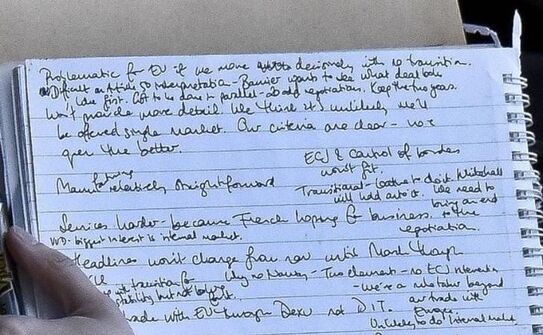 Problematic for EU if we move decisively with no transition.
Difficult on Article 50 interpretation - Barnier wants to see what deal looks
like first. Got to be done in parallel - 20 odd negotiations. Keep the two years.
Won't provide more detail. We think it's unlikely we'll
be offered single market. Our criteria are clear -
open the better.
ECJ & Control of borders
worst fit.
Manufacturing relatively straightforward
Transitional - loathe to do it. Whitehall
will hold onto it. We need to
bring an end
to the
negotiation.
Services harder - because French hoping for business.
biggest interest is internal market.
Headlines won't change from now until March though
transition for
Why no Norway - Two elements - no ECJ intervention
but not before
- we're a member beyond
our trade with
Europe
trade with EU through DExEU not DIT.
Unlikely to do internal market